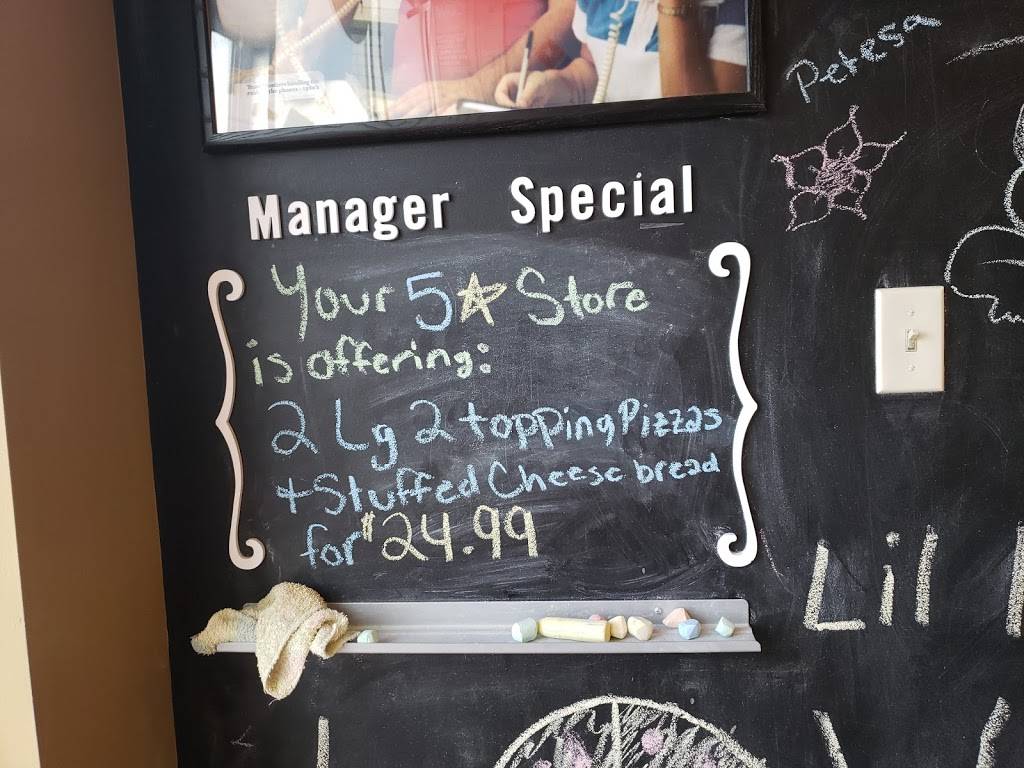 Petesa
Manager Special
Your 5 Store
is offering:
2 Lg 2 topping Pizzas
+ Stuffed Cheese bread
for $24.99
Lil